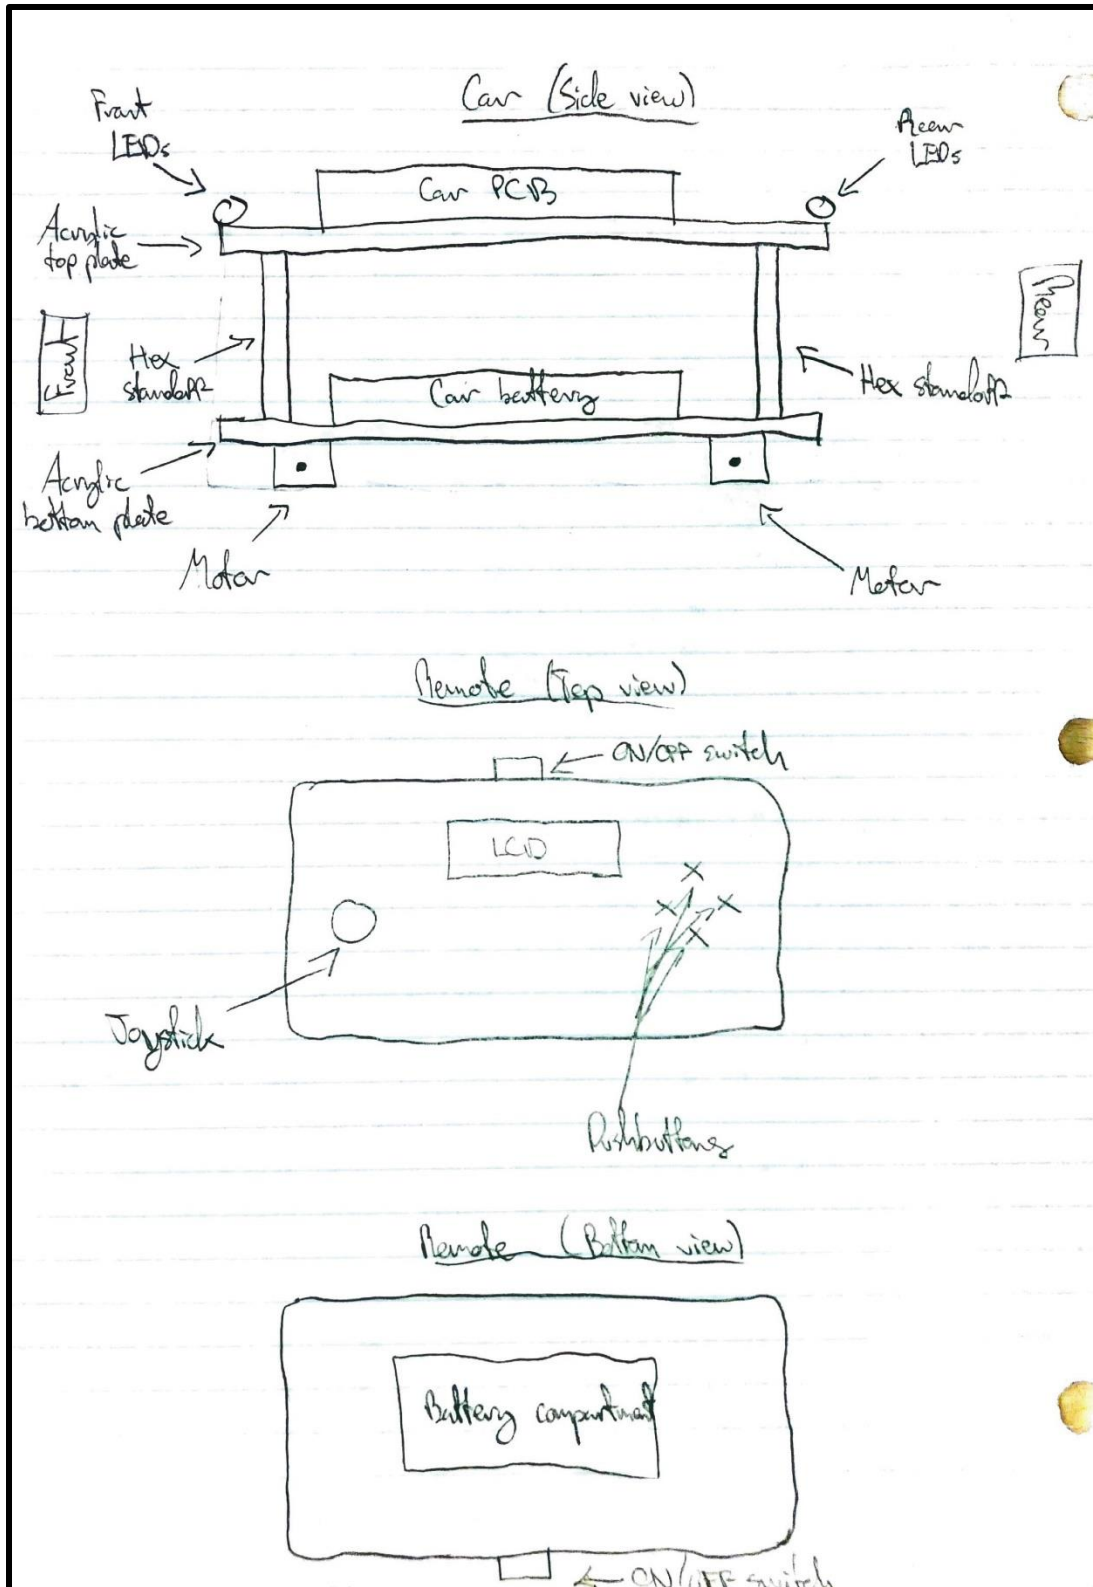 Car (Side view)
Front
LEDs
Rear
LEDs
Car PCB
Acrylic
top plate
Front
Rear
Hex
standoff
Hex standoff
Car battery
Acrylic
bottom plate
Motor
Motor
Remote (Top view)
ON/OFF switch
LCD
Joystick
Pushbuttons
Remote (Bottom view)
Battery compartment
ON/OFF switch